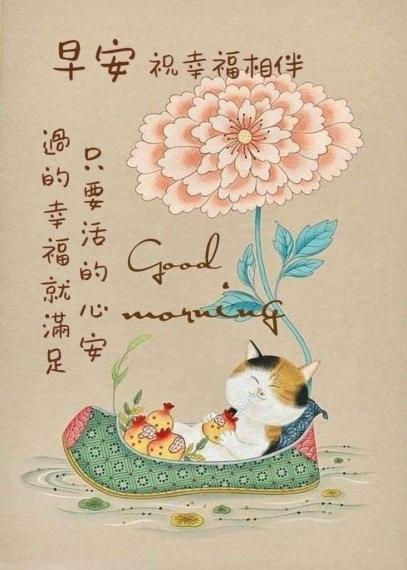 早安 祝幸福相伴
只要活的心安
過的幸福就滿足
Good
morning